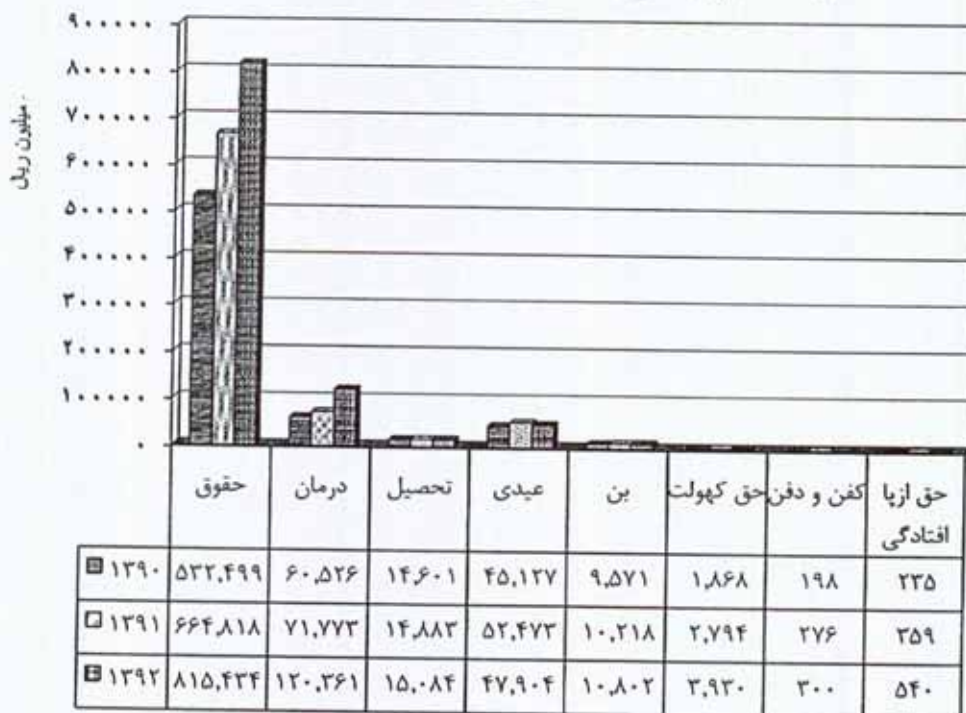 ۹۰۰۰۰۰
۸۰۰۰۰۰
۷۰۰۰۰۰
۶۰۰۰۰۰
۵۰۰۰۰۰
۴۰۰۰۰۰
۳۰۰۰۰۰
۲۰۰۰۰۰
۱۰۰۰۰۰
۰
میلیون ریال
حقوق درمان تحصیل عیدی بن حق کهولت کفن و دفن حق ازپا
افتادگی
۱۳۹۰ ۵۳۲,۴۹۹ ۶۰,۵۲۶ ۱۴,۶۰۱ ۴۵,۱۲۷ ۹,۵۷۱ ۱,۸۶۸ ۱۹۸ ۲۳۵
۱۳۹۱ ۶۶۴,۸۱۸ ۷۱,۷۷۳ ۱۴,۸۸۳ ۵۲,۴۷۳ ۱۰,۲۱۸ ۲,۷۹۴ ۲۷۶ ۳۵۹
۱۳۹۲ ۸۱۵,۴۳۴ ۱۲۰,۳۶۱ ۱۵,۰۸۴ ۴۷,۹۰۴ ۱۰,۸۰۲ ۳,۹۳۰ ۳۰۰ ۵۴۰